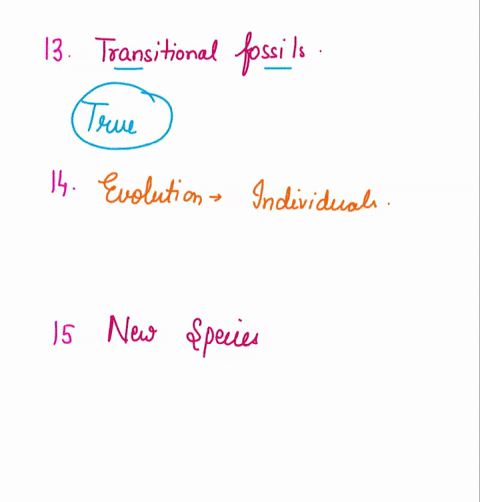 13. Transitional fossils.
True
14. Evolution → Individuals.
15 New Species